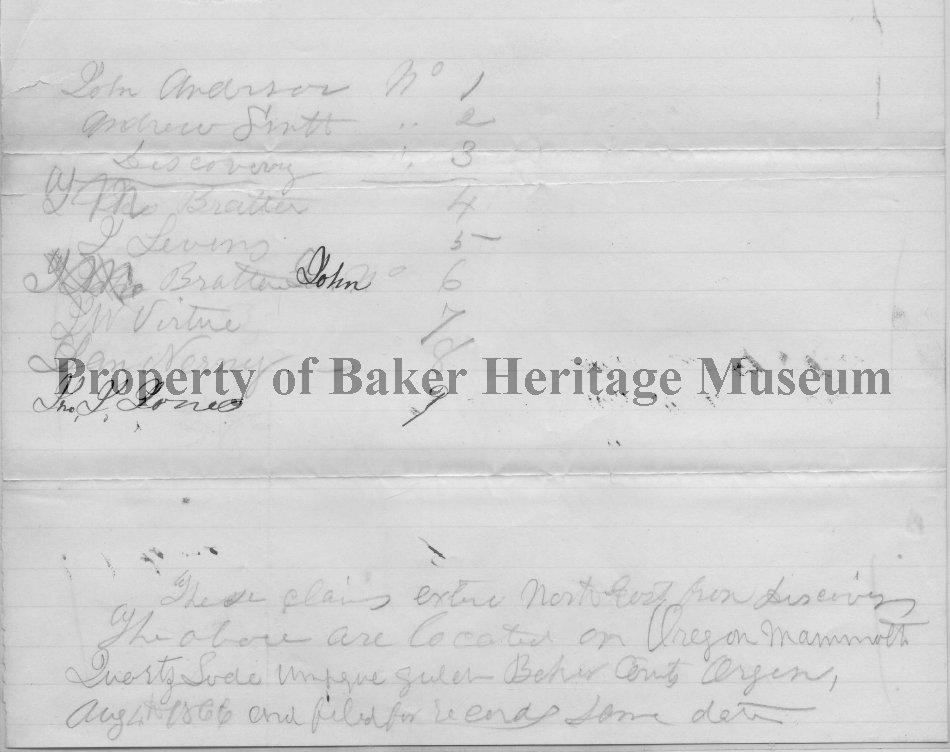 John Anderson No 1
Andrew Smith .. 2
Discovery .. 3
Bratten 4
J Levens 5
Bratten John No 6
J W Virtue 7
8
Property of Baker Heritage Museum
Jno. J. Jones 9
These claims exten North East from Discovery
The above are located on Oregon Mammoth
Quartz Lode Umpque gulch Baker County Oregon,
Aug 4th 1866 and filed for record same date